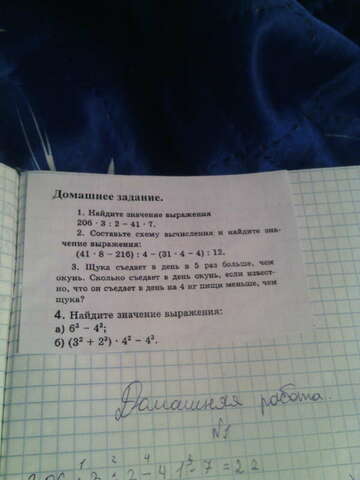 Домашнее задание.
1. Найдите значение выражения
206 · 3 : 2 – 41 · 7.
2. Составьте схему вычисления и найдите зна-
чение выражения:
(41 · 8 – 216) : 4 – (31 · 4 – 4) : 12.
3. Щука съедает в день в 5 раз больше, чем
окунь. Сколько съедает в день окунь, если извест-
но, что он съедает в день на 4 кг пищи меньше, чем
щука?
4. Найдите значение выражения:
а) 6³ – 4³;
б) (3² + 2³) · 4² – 4³.
Домашняя работа.
№1